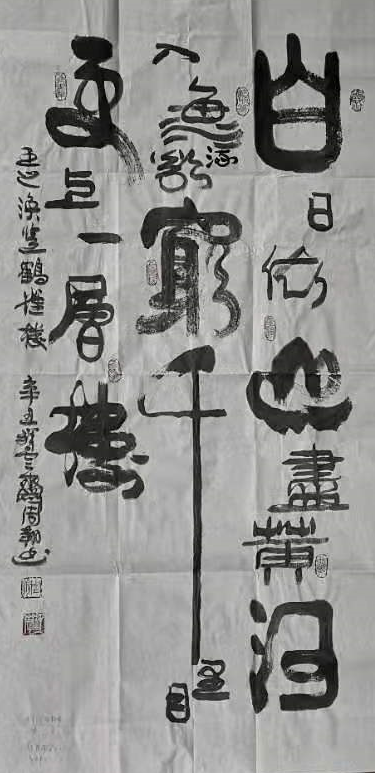 白日依山盡黄河
入海流欲窮千里目
更上一層樓
王之涣登鸛雀樓 辛丑